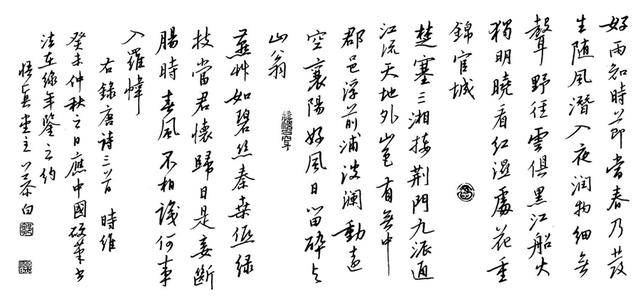 好雨知時節當春乃發
生随風潛入夜潤物細無
聲野徑雲俱黑江船火
獨明曉看紅濕處花重
錦官城
楚塞三湘接荆門九派通
江流天地外山色有無中
郡邑浮前浦波瀾動遠
空襄陽好風日留醉与
山翁
燕艸如碧絲秦桑低緑
枝當君懷歸日是妾斷
腸時春風不相識何事
入羅幃
右錄唐詩三首 時維
癸未仲秋之日應中國硬筆書
法在綫年鑒之約
堂主慕白